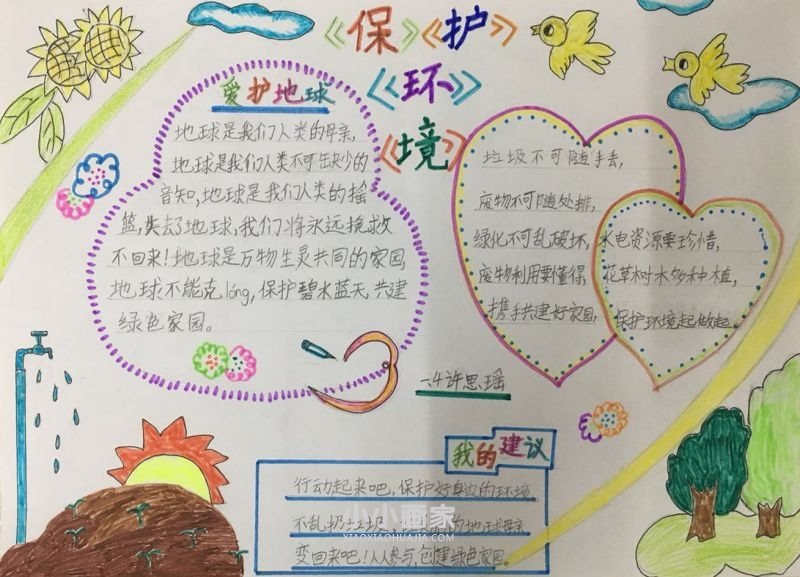 《保》《护》
《环》
《境》
爱护地球
地球是我们人类的母亲,
地球是我们人类不可缺少的
音知,地球是我们人类的摇
篮,失去了地球,我们将永远挽救
不回来!地球是万物生灵共同的家园,
地球不能克lóng,保护碧水蓝天,共建
绿色家园。
垃圾不可随手丢,
废物不可随处排,
绿化不可乱破坏,
废物利用要懂得,
携手共建好家园,
水电资源要珍惜,
花草树木多种植,
保护环境起做起。
一.4许思瑶
我的建议
行动起来吧,保护好身边的环境
不乱扔垃圾,的地球母亲
变回来吧!人人参与,创建绿色家园。
小小画家
XIAOXIAOHUAJIA.COM